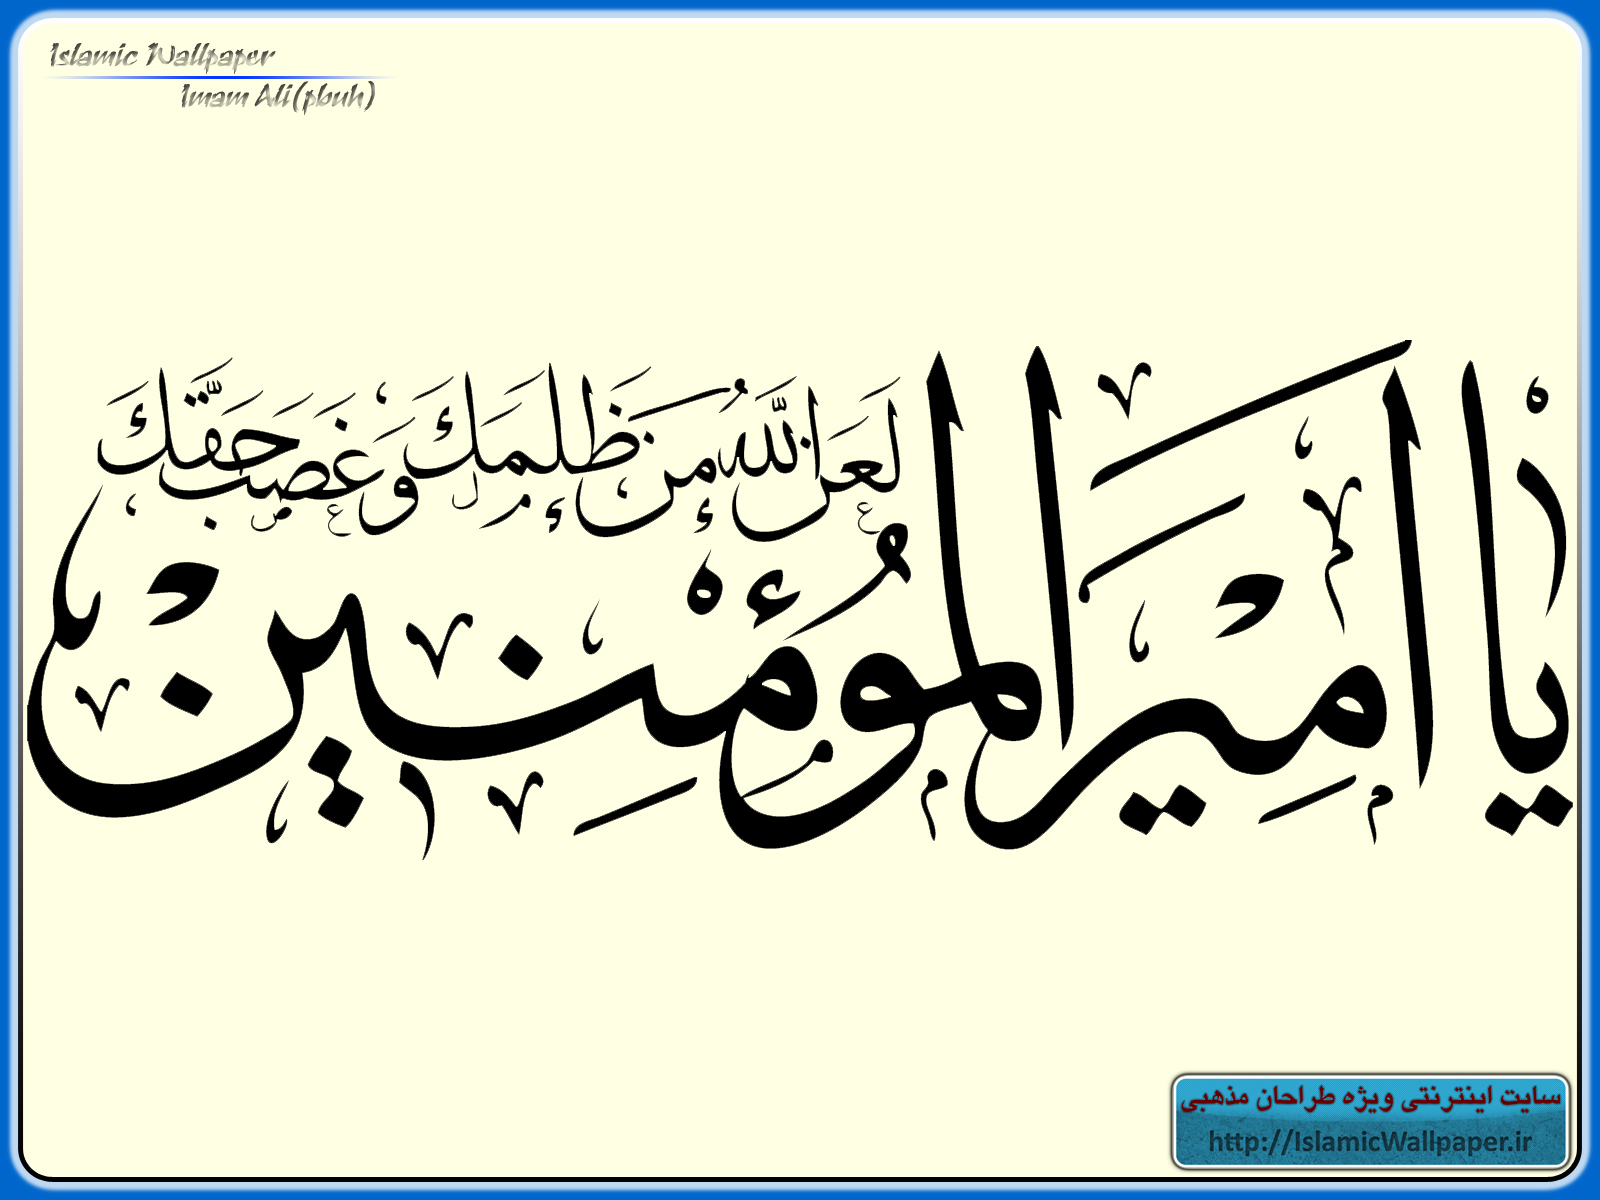 Islamic Wallpaper
Imam Ali(pbuh)
لَعَنَ اللّٰهُ مَنْ ظَلَمَكَ وَ غَصَبَ حَقَّكَ
يا اَمِيرَ الْمُؤْمِنِينْ
سایت اینترنتی ویژه طراحان مذهبی
http://IslamicWallpaper.ir